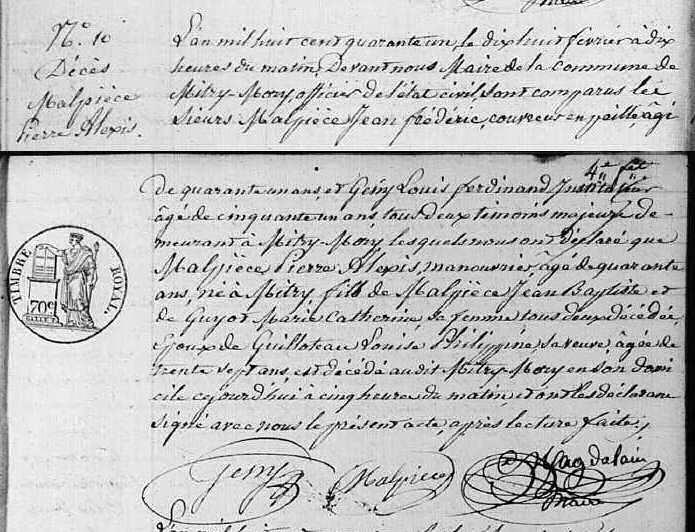 N.º 10
Décès
Malpièce
Pierre Alexis.
L'an mil huit cent quarante un, le dix huit février à dix
heures du matin, Devant nous Maire de la Commune de
Mitry-Mory, officier de l'état civil, sont comparus les
Sieurs Malpièce Jean frédéric, couvreur en paille, âgé
4e
de quarante un ans, et Gény Louis ferdinand Instituteur
âgé de cinquante un ans, tous deux temoins majeurs de-
meurant à Mitry-Mory, lesquels nous ont déclaré que
Malpièce Pierre Alexis, manouvrier, âgé de quarante
ans, né à Mitry, fils de Malpièce Jean Baptiste et
de Guyot Marie Catherine, sa femme tous deux décédés,
Epoux de Guilloteau Louise Philippine, sa veuve, âgée de
trente sept ans, est décédé audit Mitry-Mory en son domi
cile cejourd'hui à cinq heures du matin, et ont les déclarans
signé avec nous le présent acte, après lecture faite.
TIMBRE ROYAL
70c
Geny Malpièce Magdelain
L'an mil huit